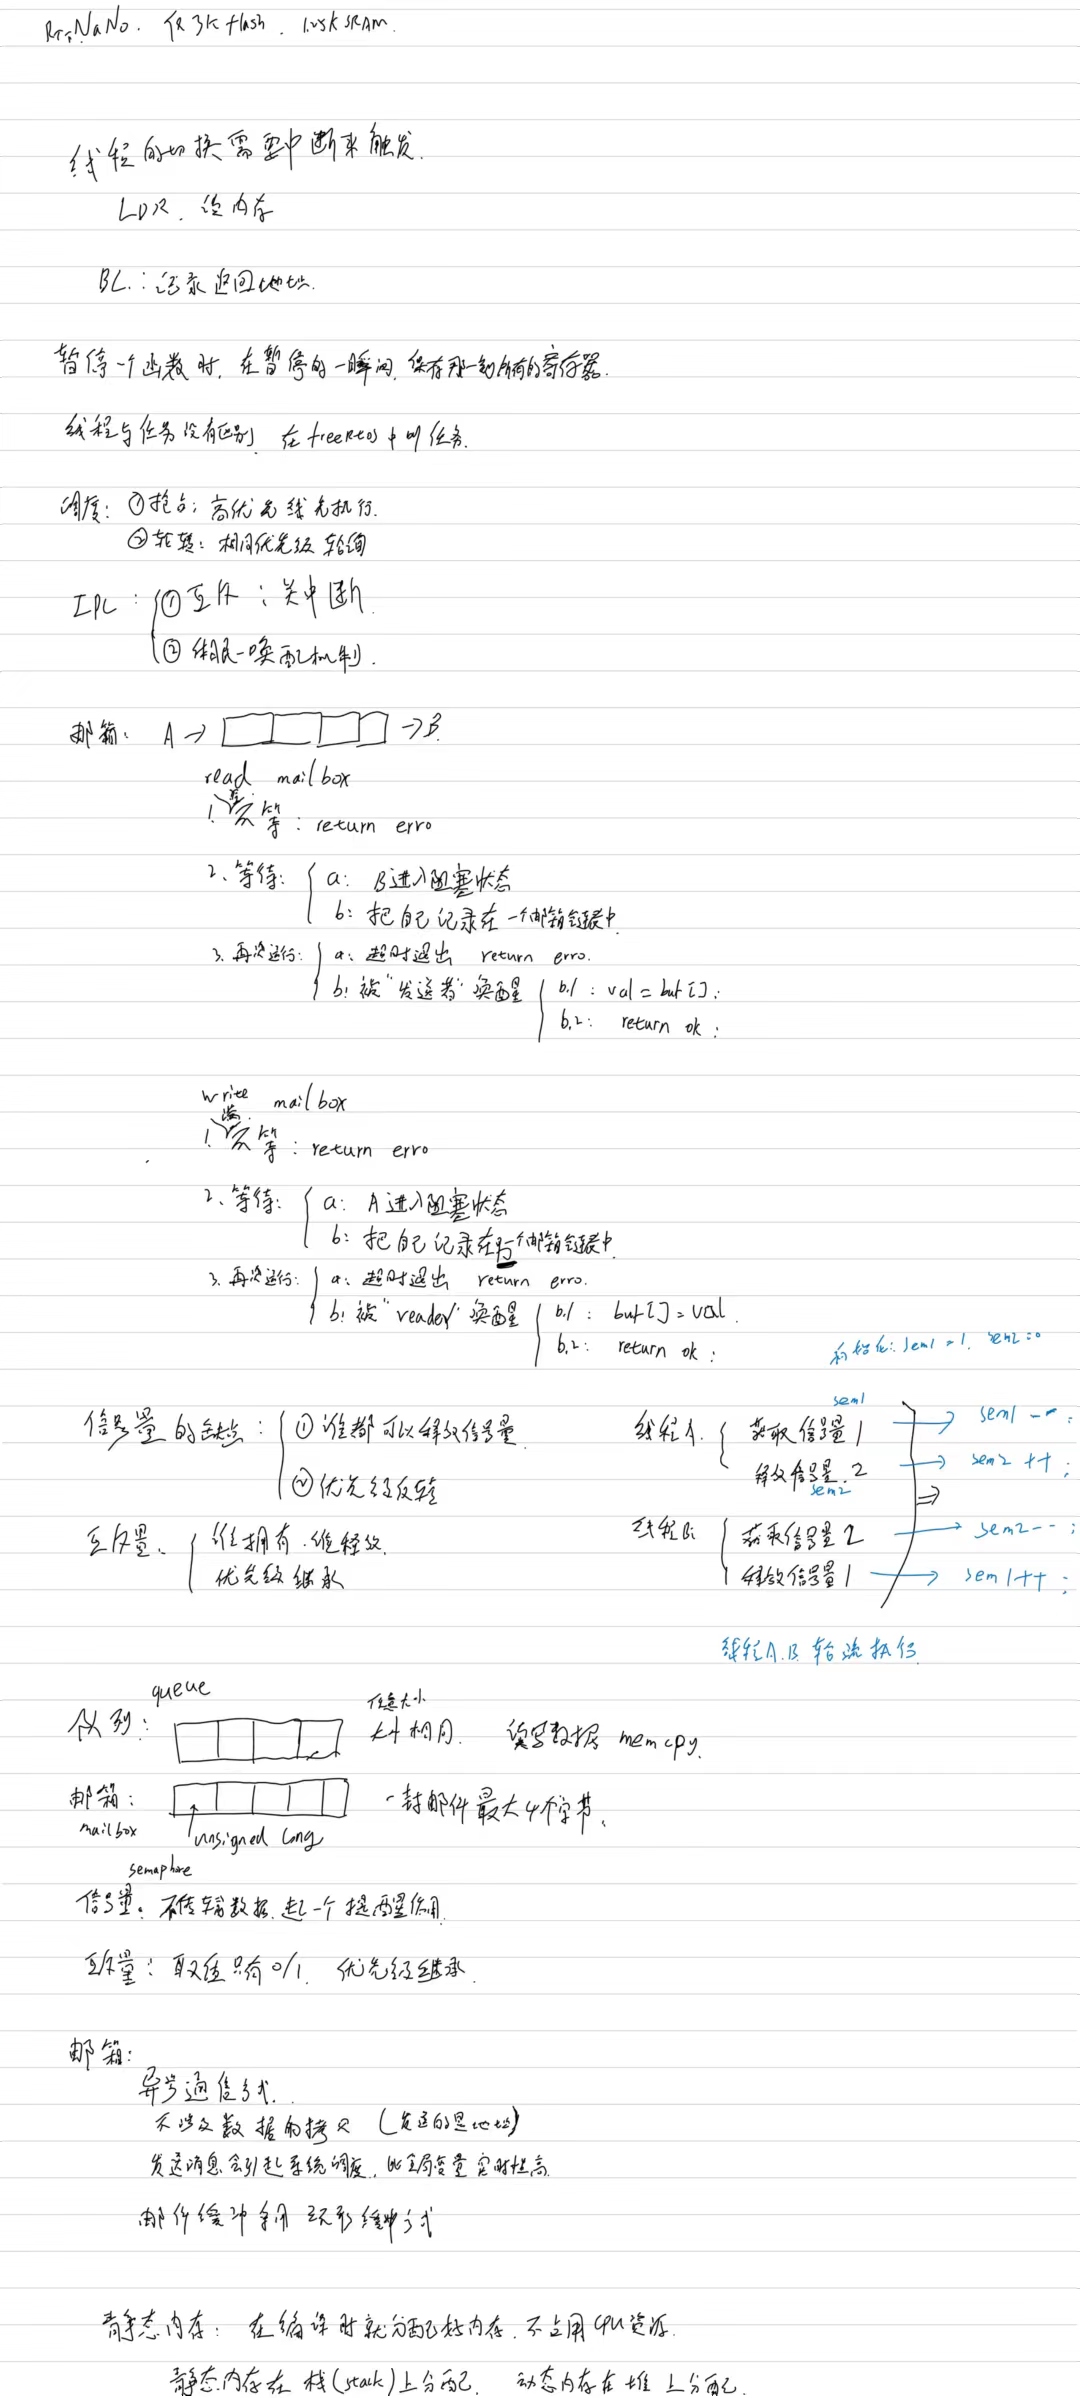 RTT NaNo. 仅3K flash. 1.25K SRAM.
线程的切换需要中断来触发.
LDR. 读内存
BL.: 记录返回地址.
暂停一个函数时, 在暂停的一瞬间, 保存那一刻所有的寄存器.
线程与任务没有区别, 在freeRtos中叫任务.
调度: ①抢占: 高优先级先执行.
②轮转: 相同优先级 轮询
IPC: ①互斥: 关中断.
②休眠-唤醒机制.
邮箱: A → → B.
read mailbox
空
1. 不等: return erro
2、等待: a: B进入阻塞状态
b: 把自己记录在一个邮箱链表中.
3. 再次运行: a: 超时退出 return erro.
b: 被"发送者"唤醒 b.1: val = buf[];
b.2: return ok;
write mailbox
满
1. 不等: return erro
2、等待: a: A进入阻塞状态
b: 把自己记录在另一个邮箱链表中.
3. 再次运行: a: 超时退出 return erro.
b: 被"reader"唤醒 b.1: buf[] = val.
b.2: return ok;
初始化: sem1 = 1. sem2 = 0
信号量的缺点: ①谁都可以释放信号量.
②优先级反转
互斥量. 谁拥有.谁释放.
优先级继承
sem1
线程A. 获取信号量1 → sem1 --;
释放信号量.2 → sem2 ++;
sem2
⇒
线程B: 获取信号量2 → sem2--;
释放信号量1 → sem1++;
线程A.B.轮流执行.
queue
队列: 任意大小
大小相同. 读写数据 memcpy.
邮箱: 一封邮件最大4个字节.
mailbox unsigned long
semaphore
信号量. 不传输数据.起一个提醒作用.
互斥量: 取值只有0/1. 优先级继承.
邮箱:
异步通信方式.
不涉及数据的拷贝 (发送的是地址)
发送消息会引起系统调度, 比全局变量实时性高.
邮件缓冲采用 环形缓冲方式
静态内存: 在编译时就分配好内存.不占用CPU资源.
静态内存在 栈(stack)上分配. 动态内存在堆上分配.